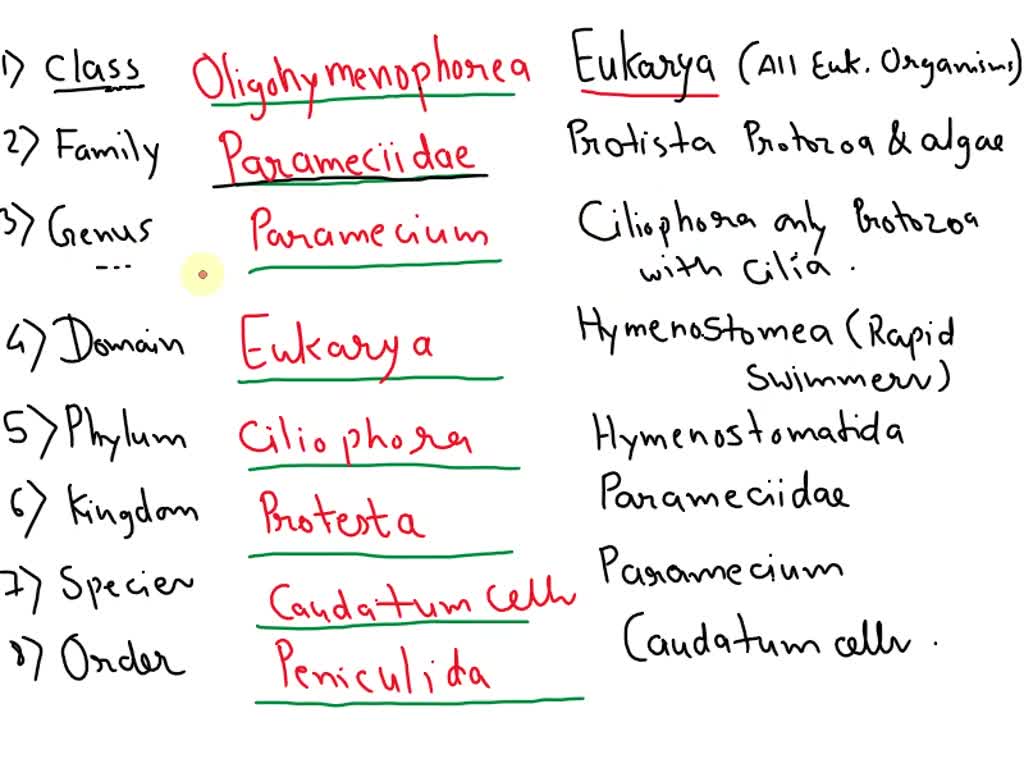 1) Class Oligohymenophorea Eukarya (All Euk. Organisms)
2) Family Parameciidae Protista Protozoa & algae
3) Genus Paramecium Ciliophora only Protozoa
with cilia .
4) Domain Eukarya Hymenostomea (Rapid
Swimmers)
5) Phylum Ciliophora Hymenostomatida
6) Kingdom Protesta Parameciidae
7) Species Caudatum cells Paramecium
8) Order Peniculida Caudatum cells .